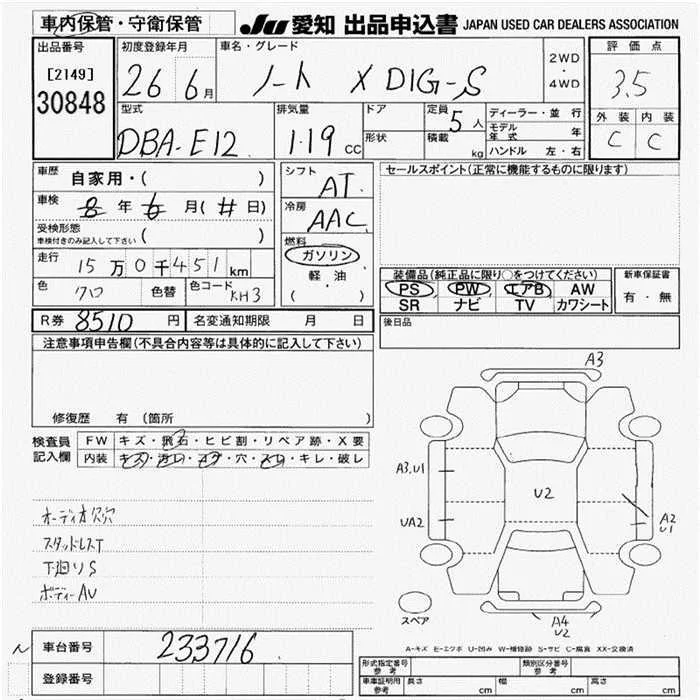 車内保管・守衛保管
JU 愛知 出品申込書 JAPAN USED CAR DEALERS ASSOCIATION
出品番号
[2149]
30848
初度登録年月
26 6月
車名・グレード
ノート X DIG-S
2WD
・
4WD
評価点
3.5
外装 内装
C C
型式
DBA-E12
排気量
1.19 CC
ドア
形状
定員 5人
積載 kg
ディーラー・並行
モデル年式 年
ハンドル 左・右
車歴
自家用・( )
車検 8年6月(#日)
受検形態
車検付きのみ記入して下さい ( )
走行 15万0千451km
色 クロ 色替 色コード KH3
R券 8510円 名変通知期限 月 日
シフト
AT
冷房
AAC
燃料
ガソリン
軽油
( )
セールスポイント(正常に機能するものに限ります)
装備品(純正品に限り○をつけてください)
PS PW エアB AW
SR ナビ TV カワシート
新車保証書
有・無
後日品
注意事項申告欄(不具合内容等は具体的に記入して下さい)
修復歴 有(箇所 )
検査員記入欄
FW キズ・飛石・ヒビ割・リペア跡・X要
内装 キズ・汚レ・コゲ・穴・スレ・キレ・破レ
オーディオ欠穴
スタッドレスT
下廻りS
ボディーAU
A3
A3,U1
UA2
U2
A2
U1
A4
U2
スペア
A-キズ E-エクボ U-凹み W-補修跡 S-サビ C-腐食 XX-交換済
N
車台番号 233716
登録番号
形式指定番号
参考
類別区分番号
参考
車車証明用
参考
長さ cm 幅 cm 高さ cm